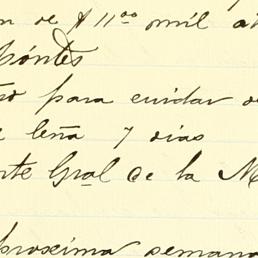 n de $11.00 mil a
póntes
ño para cuidar d
e leña 7 dias
rte Gral de la M
proxima semana